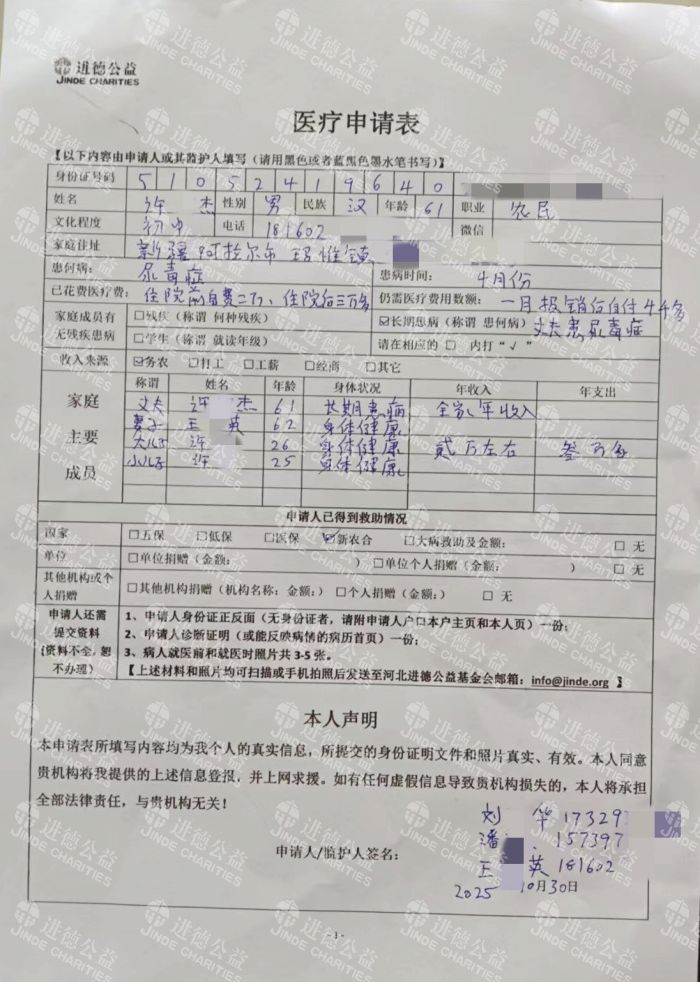 进德公益
JINDE CHARITIES
医疗申请表
【以下内容由申请人或其监护人填写（请用黑色或者蓝黑色墨水笔书写）】
身份证号码 5 1 0 5 2 4 1 9 6 4 0
姓名 许 杰 性别 男 民族 汉 年龄 61 职业 农民
文化程度 初中 电话 181602 微信
家庭住址 新疆阿拉尔市 镇
患何病： 尿毒症 患病时间： 4月份
已花费医疗费： 住院前自费二万、住院后三万多 仍需医疗费用数额： 一月报销后自付4千多
家庭成员有无残疾患病 □残疾（称谓 何种残疾） ☑长期患病（称谓 患何病） 丈夫患尿毒症
□学生（称谓 就读年级） 请在相应的 □ 内打“√”
收入来源 ☑务农 □打工 □工薪 □经商 □其它
家庭主要成员 称谓 姓名 年龄 身体状况 年收入 年支出
丈夫 许 杰 61 长期患病 全家年收入
妻子 王 英 62 身体健康
大儿子 许 26 身体健康 贰万左右 叁万多
小儿子 许 25 身体健康
申请人已得到救助情况
国家 □五保 □低保 □医保 ☑新农合 □大病救助及金额： □ 无
单位 □单位捐赠（金额： ） □单位个人捐赠（金额： ） □ 无
其他机构或个人捐赠 □其他机构捐赠（机构名称：金额：） □个人捐赠（金额：） □ 无
申请人还需提交资料（资料不全，恕不办理）
1、申请人身份证正反面（无身份证者，请附申请人户口本户主页和本人页）一份；
2、申请人诊断证明（或能反映病情的病历首页）一份；
3、病人就医前和就医时照片共 3-5 张。
【上述材料和照片均可扫描或手机拍照后发送至河北进德公益基金会邮箱：info@jinde.org 】
本人声明
本申请表所填写内容均为我个人的真实信息，所提交的身份证明文件和照片真实、有效。本人同意
贵机构将我提供的上述信息登报，并上网求援。如有任何虚假信息导致贵机构损失的，本人将承担
全部法律责任，与贵机构无关！
刘 华 17329
潘 157397
申请人/监护人签名： 王 英 181602
2025 10月30日
- 1 -